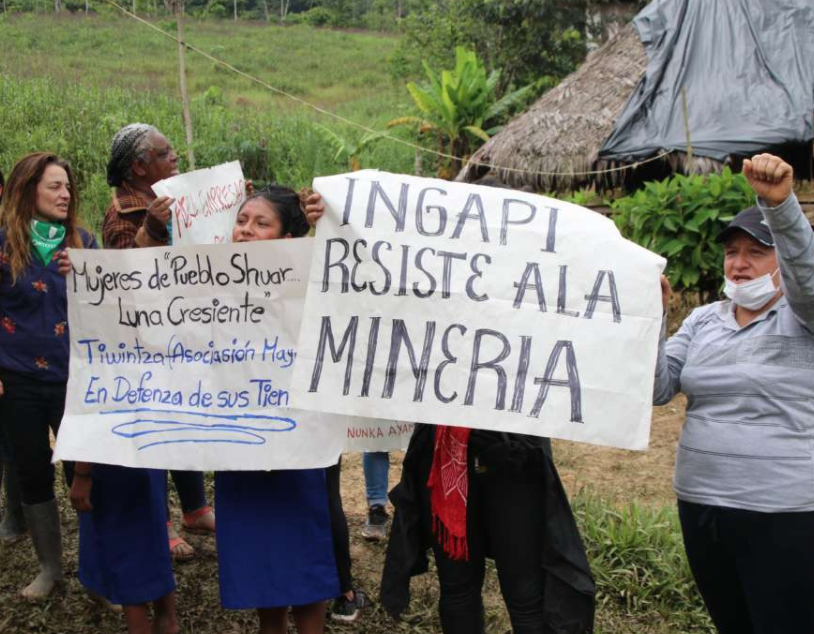 Mujeres de "Pueblo Shuar...
Luna Cresiente"
Tiwintza (Asociasión May
En Defenza de sus Tien
INGAPI
RESISTE A LA
MINERIA
EMPRESA
NUNKA AYAM